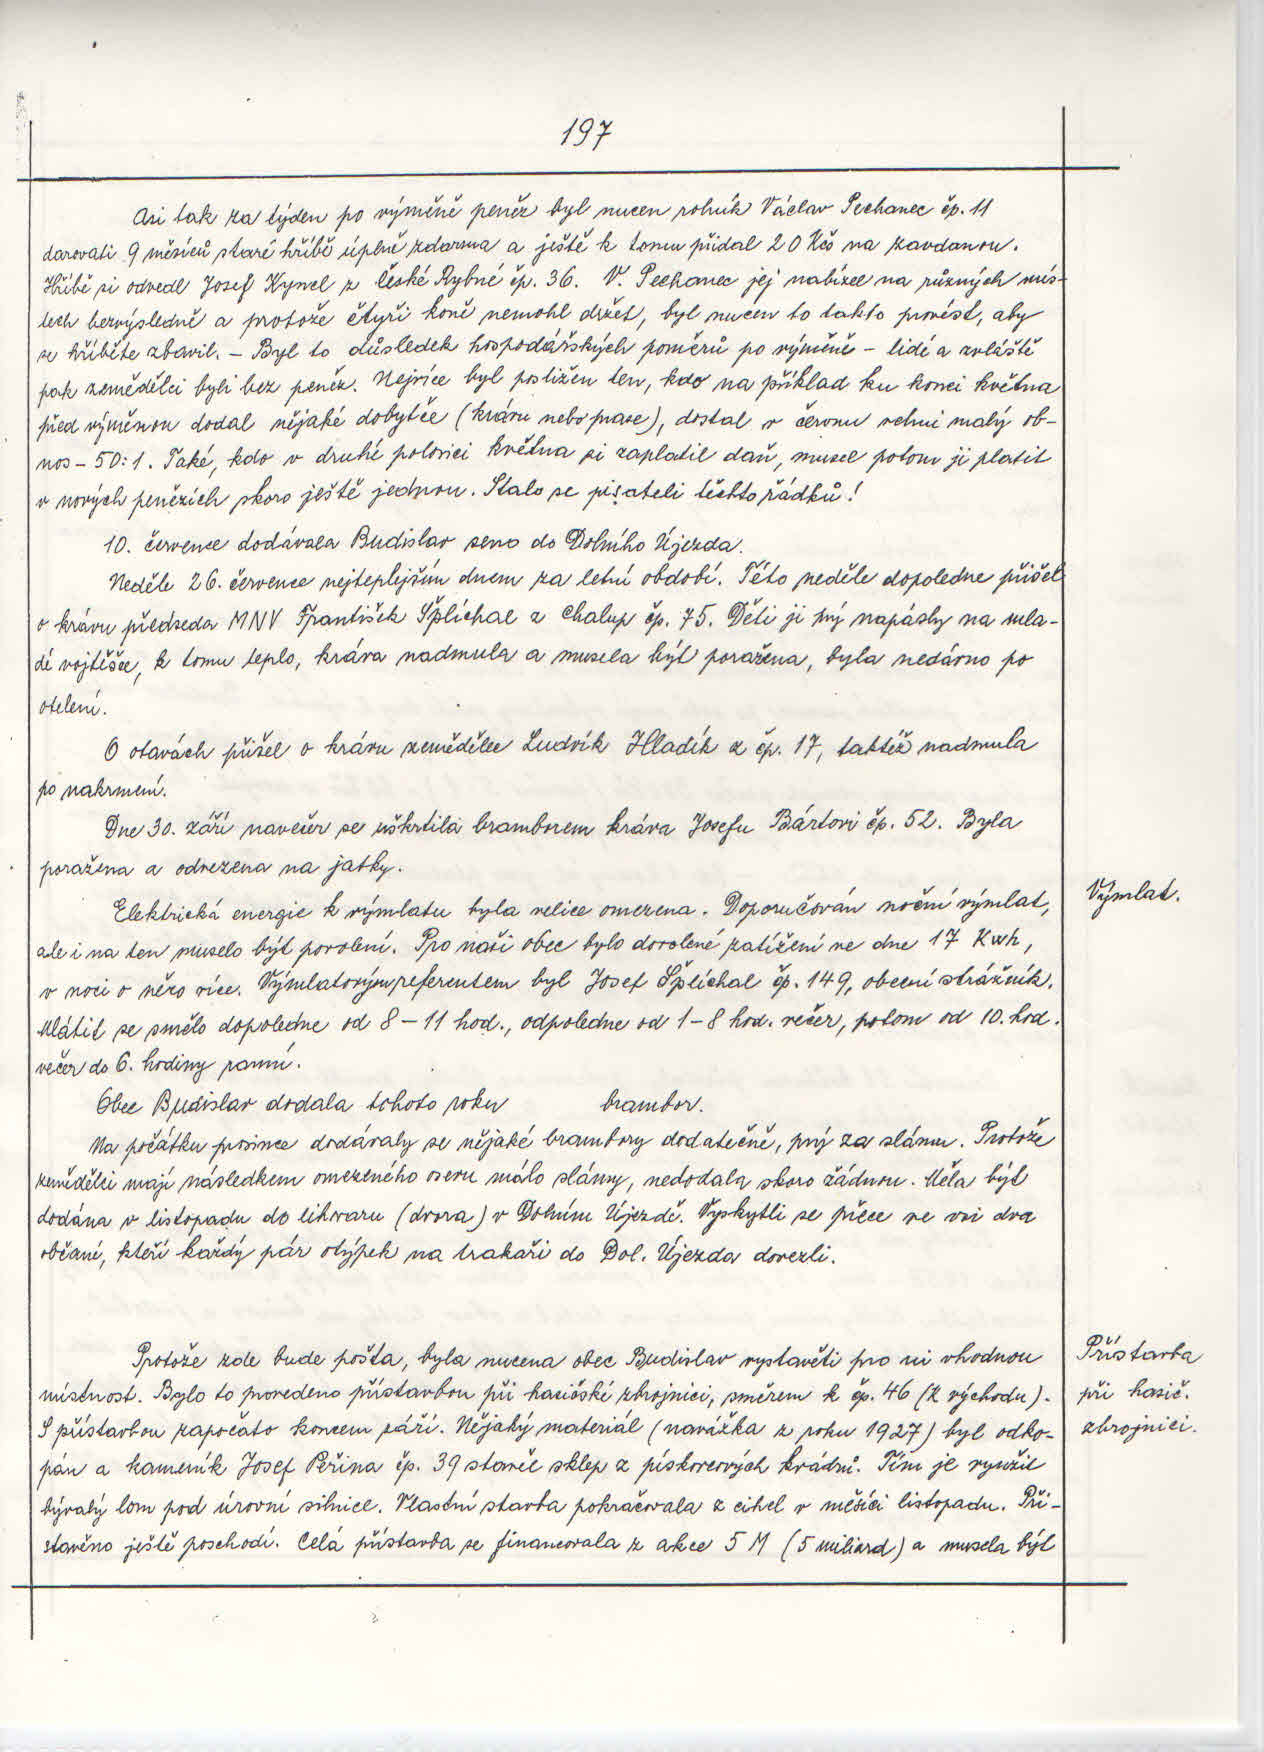 197
Asi tak za týden po výměně peněz byl nucen rolník Václav Pechanec čp. 11
darovati 9 měsíců staré hříbě úplně zdarma a ještě k tomu přidal 20 Kčs na zavdanou.
Hříbě si odvedl Josef Kyncl z České Rybné čp. 36. V. Pechanec jej nabízel na různých mís-
tech bezvýsledně a protože čtyři koně nemohl držet, byl nucen to takto provést, aby
se hříběte zbavil. – Byl to důsledek hospodářských poměrů po výměně – lidé a zvláště
pak zemědělci byli bez peněz. Nejvíce byl postižen ten, kdo na příklad ku konci května
před výměnou dodal nějaké dobytče (krávu nebo prase), dostal v červnu velmi malý ob-
nos – 50:1. Také, kdo v druhé polovici května si zaplatil daň, musel potom ji platit
v nových penězích skoro ještě jednou. Stalo se pisateli těchto řádků!
10. července dodávala Budislav seno do Dolního Újezda.
Neděle 26. července nejteplejším dnem za letní období. Této neděle dopoledne přišel
o krávu předseda MNV František Šplíchal z Chalup čp. 75. Děti ji prý napásly na mla-
dé vojtěšce, k tomu teplo, kráva nadmula a musela být poražena, byla nedávno po
otelení.
O otavách přišel o krávu zemědělec Ludvík Hladík z čp. 17, taktéž nadmula
po nakrmení.
Dne 30. září navečer se uškrtila bramborem kráva Josefu Bártovi čp. 52. Byla
poražena a odvezena na jatky.
Výmlat.
Elektrická energie k výmlatu byla velice omezena. Doporučován noční výmlat,
ale i na ten muselo být povolení. Pro naši obec bylo dovolené zatížení ve dne 17 Kwh,
v noci o něco více. Výmlatovým referentem byl Josef Šplíchal čp. 149, obecní strážník.
Mlátit se smělo dopoledne od 8 – 11 hod., odpoledne od 1–8 hod. večer, potom od 10. hod.
večer do 6. hodiny ranní.
Obec Budislav dodala tohoto roku brambor.
Na počátku prosince dodávaly se nějaké brambory dodatečně, prý za slámu. Protože
zemědělci mají následkem omezeného osevu málo slámy, nedodala skoro žádnou. Měla být
dodána v listopadu do lihovaru (dvora) v Dolním Újezdě. Vyskytli se přece ve vsi dva
občané, kteří každý pár otýpek na trakaři do Dol. Újezda dovezli.
Přístavba
při hasič.
zbrojnici.
Protože zde bude pošta, byla nucena obec Budislav vystavěti pro ni vhodnou
místnost. Bylo to provedeno přístavbou při hasičské zbrojnici, směrem k čp. 46 (k východu).
S přístavbou započato koncem září. Nějaký materiál (navážka z roku 1927) byl odko-
pán a kameník Josef Peřina čp. 39 stavěl sklep z pískovcových kvádrů. Tím je využit
bývalý lom pod úrovní silnice. Vlastní stavba pokračovala z cihel v měsíci listopadu. Při-
stavěno ještě poschodí. Celá přístavba se financovala z akce 5 M (5 miliard) a musela být